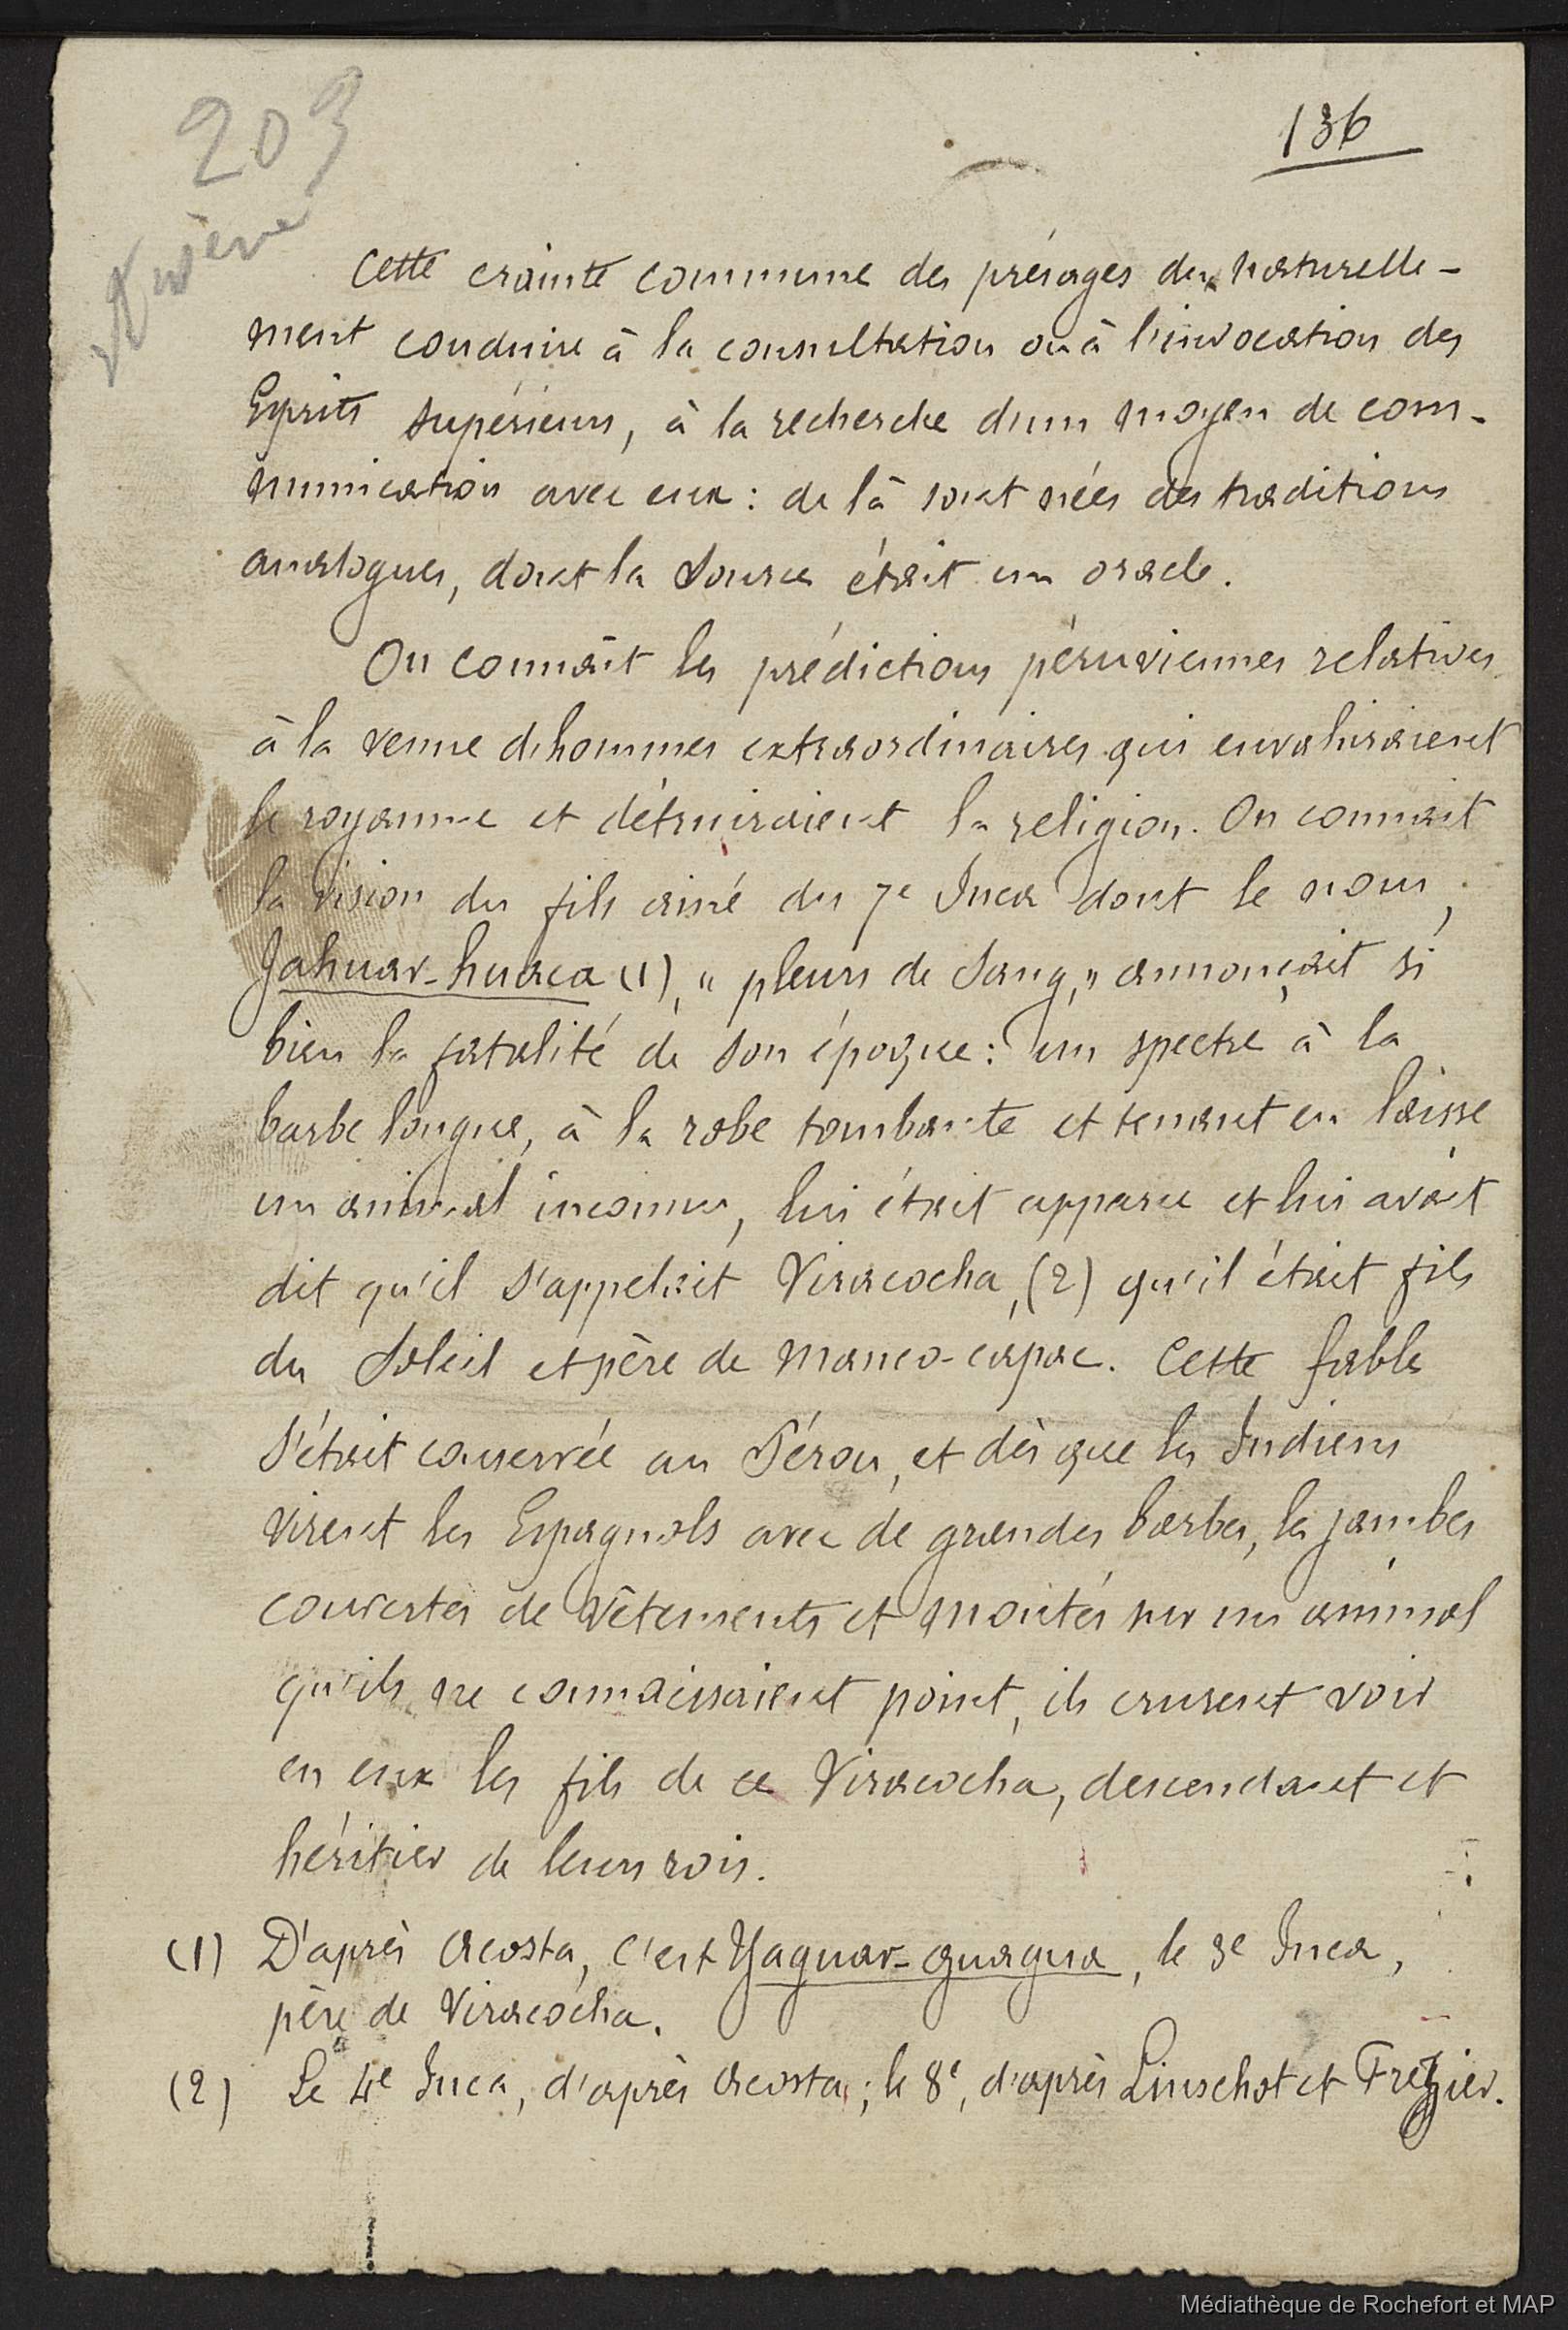 203
136
Cette crainte commune des présages dut naturelle-
ment conduire à la consultation ou à l'invocation des
Esprits supérieurs, à la recherche d'un moyen de com-
munication avec eux : de là sont nées des traditions
analogues, dont la source était un oracle.
On connaît les prédictions péruviennes relatives
à la venue d'hommes extraordinaires qui envahiraient
le royaume et détruiraient la religion. On connait
la vision du fils ainé du 7e Inca dont le nom,
Jahuar-huaca (1), "pleurs de sang," annonçait si
bien la fatalité de son époque : un spectre à la
barbe longue, à la robe tombante et tenant en laisse
un animal inconnu, lui était apparu et lui avait
dit qu'il s'appelait Viracocha, (2) qu'il était fils
du Soleil et père de Manco-capac. Cette fable
s'était conservée au Pérou, et dès que les Indiens
virent les Espagnols avec de grandes barbes, les jambes
couvertes de vêtements et montés sur un animal
qu'ils ne connaissaient point, ils crurent voir
en eux les fils de ce Viracocha, descendant et
héritier de leurs rois.
(1) D'après Acosta, c'est Yaguar-guaqua, le 3e Inca,
père de Viracocha.
(2) Le 4e Inca, d'après Acosta ; le 8e, d'après Linschot et Frezier.
Médiathèque de Rochefort et MAP